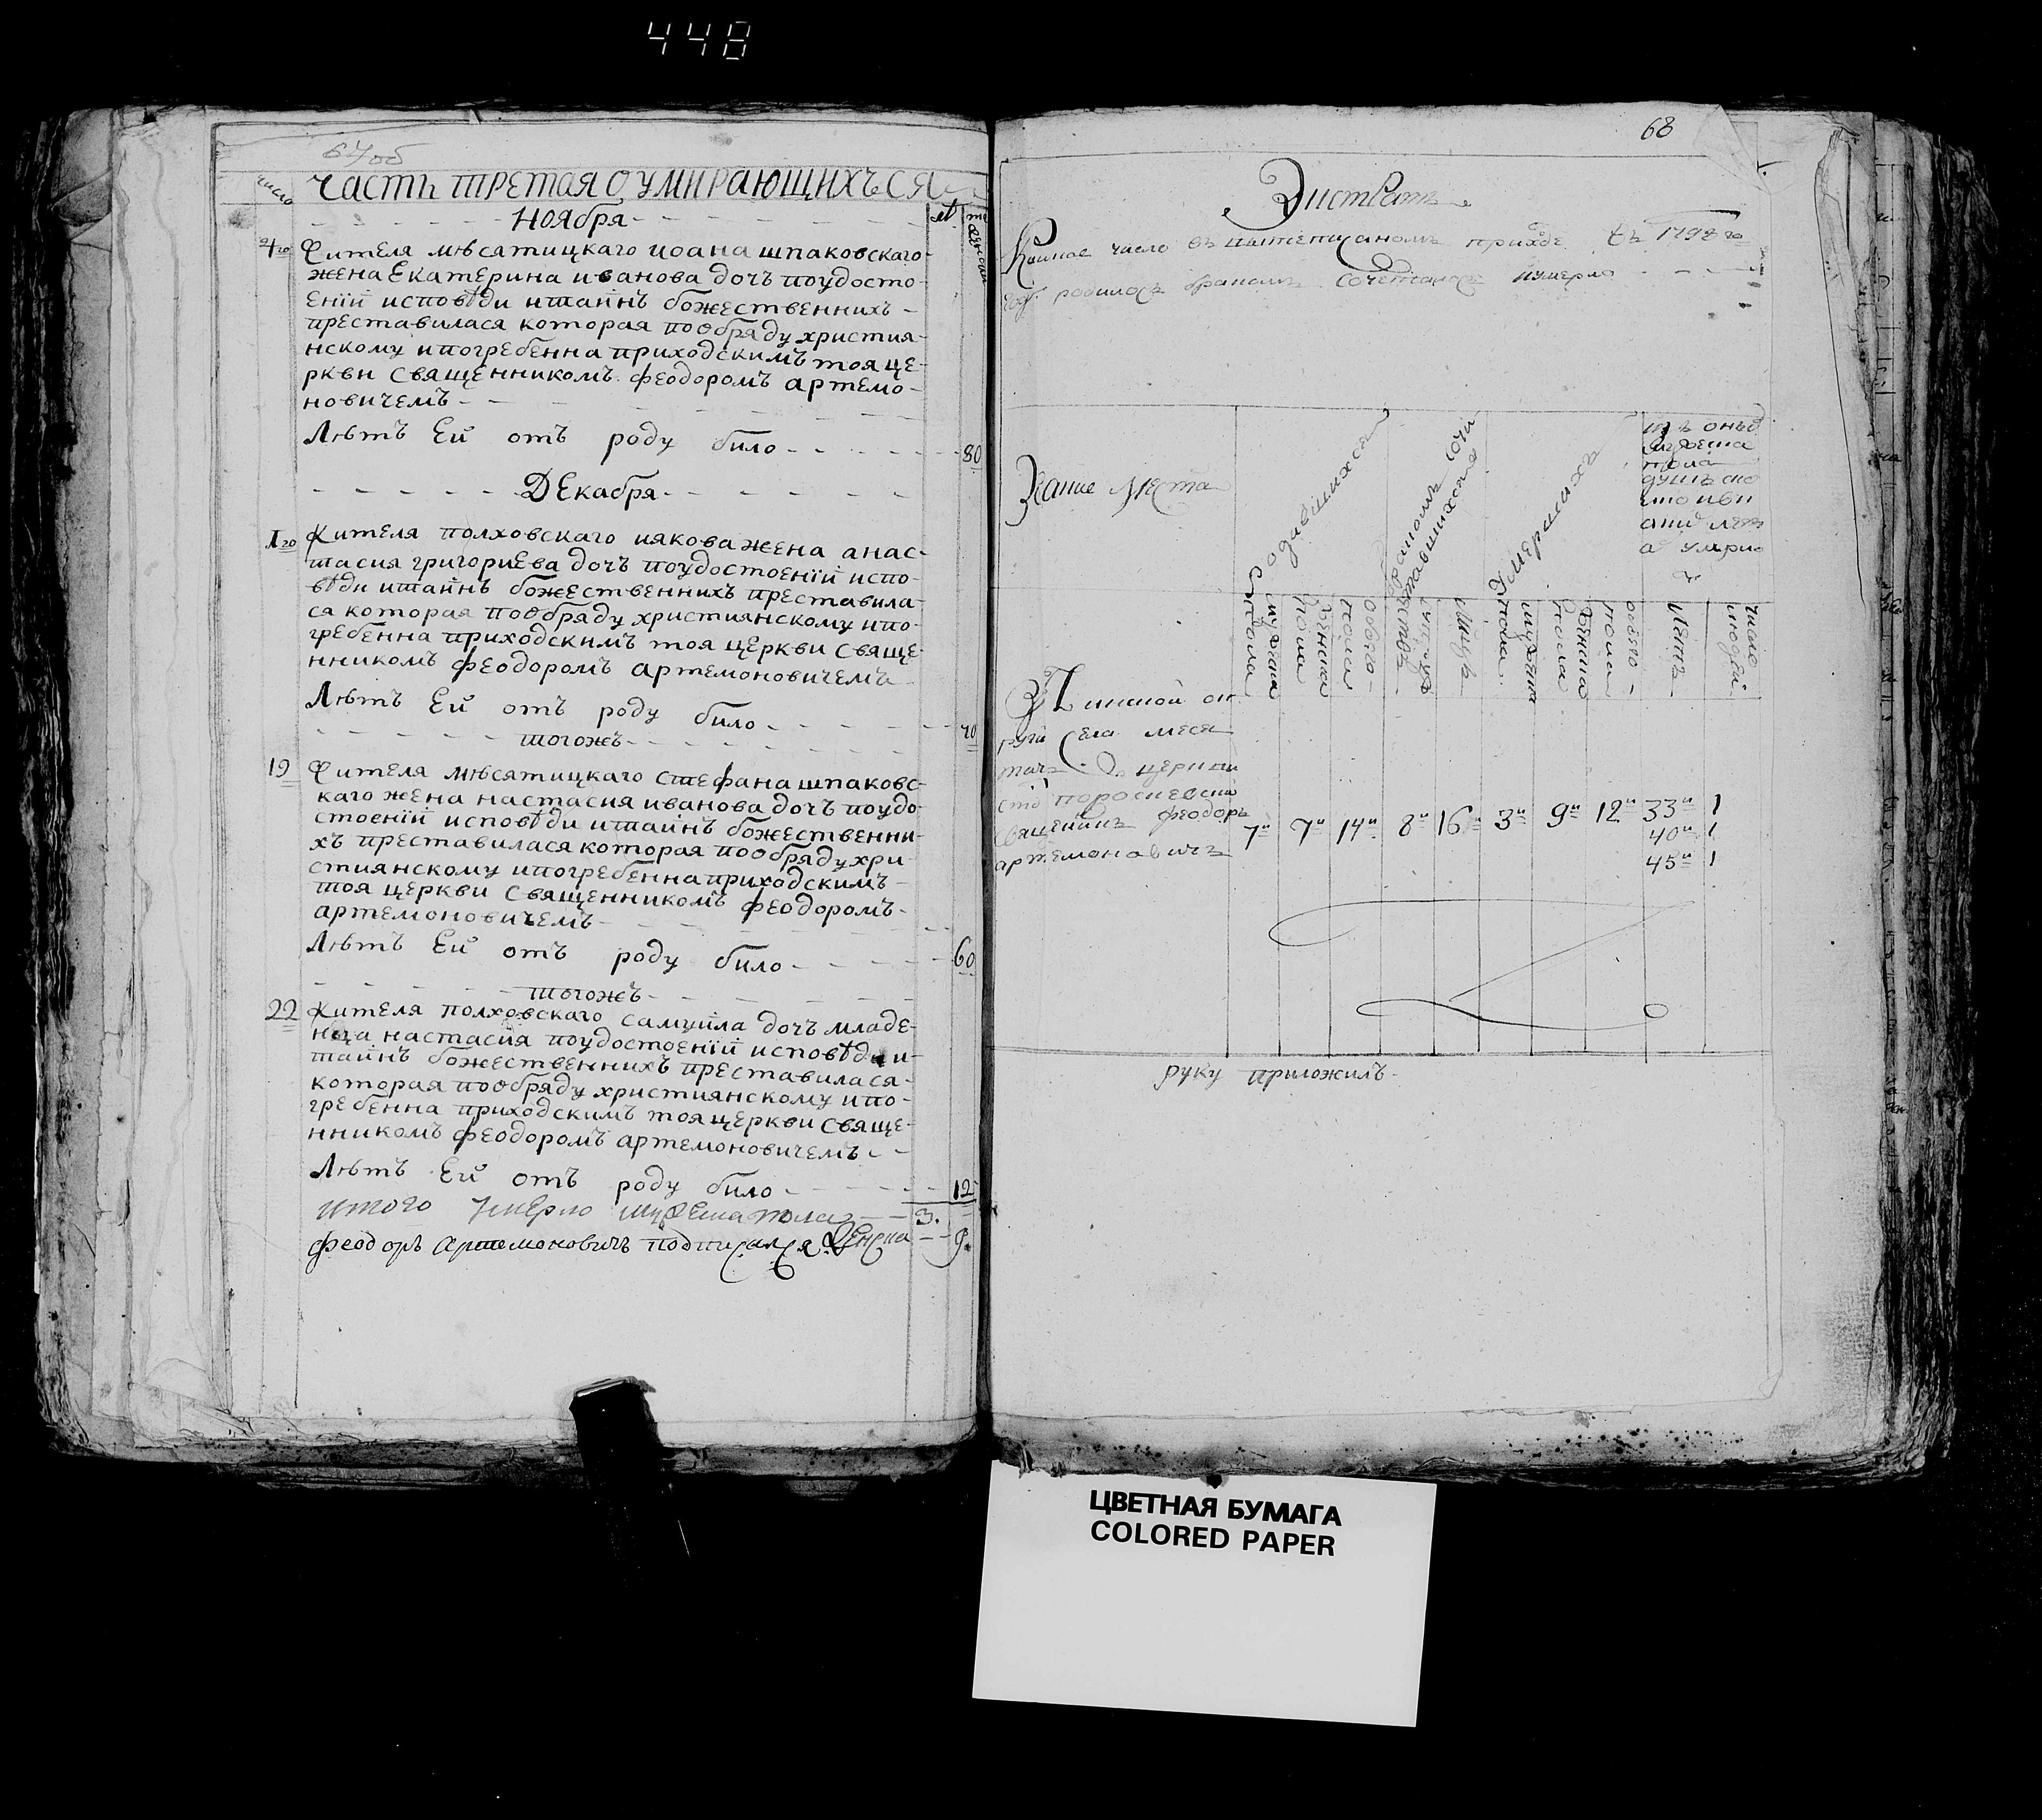 448
67об
число
часть третая о умирающихъся
Ноября
4го Жителя мѣсятицкаго иоана шпаковскаго
жена Екатерина иванова дочъ поудосто-
ений исповѣди итайнъ божественнихъ
преставилася которая пообряду христия-
нскому ипогребенна приходскимъ тоя це-
ркви священникомъ феодоромъ артемо-
новичемъ
Лѣтъ Ей отъ роду било 80
Декабря
1го Жителя полховскаго иякова жена анас-
тасия григориева дочъ поудостоений испо-
вѣди итайнъ божественнихъ преставила-
са которая пообряду християнскому ипо-
гребенна приходскимъ тоя церкви свяще-
нникомъ феодоромъ артемоновичемъ
Лѣтъ Ей отъ роду било 40
тогожъ
19 Жителя мѣсятицкаго стефана шпаковс-
каго жена настасия иванова дочъ поудо-
стоений исповѣди итайнъ божественни-
хъ преставилася которая пообряду хри-
стиянскому ипогребенна приходскимъ
тоя церкви священникомъ феодоромъ
артемоновичемъ
Лѣтъ Ей отъ роду било 60
тогожъ
22 Жителя полховскаго самуила дочъ младе-
нца настасия поудостоений исповѣди и
тайнъ божественнихъ преставилася
которая пообряду християнскому ипо-
гребенна приходскимъ тоя церкви свяще-
нникомъ феодоромъ артемоновичемъ
Лѣтъ Ей отъ роду било 12
итого умерло мужеска пола 3.
феодоръ Артемоновичъ подписался Женска 9.
68
Экстрактъ
число въ приходе въ 1798 го
году родилось бракомъ сочеталось иумерло
Звание места
одавшихся
бракомъ сочи
тавшихся
Умершихъ
мужеска
пола
душъ
мужеска пола
женска пола
обоего
мужеска пола
женска пола
обоего
Летъ
число людей
Пинской ок
руги села меся
тичъ церкви
священникъ феодоръ
артемоновичъ
7 7 14 8 16 3 9 12 33 1
40 1
45 1
руку приложилъ
ЦВЕТНАЯ БУМАГА
COLORED PAPER